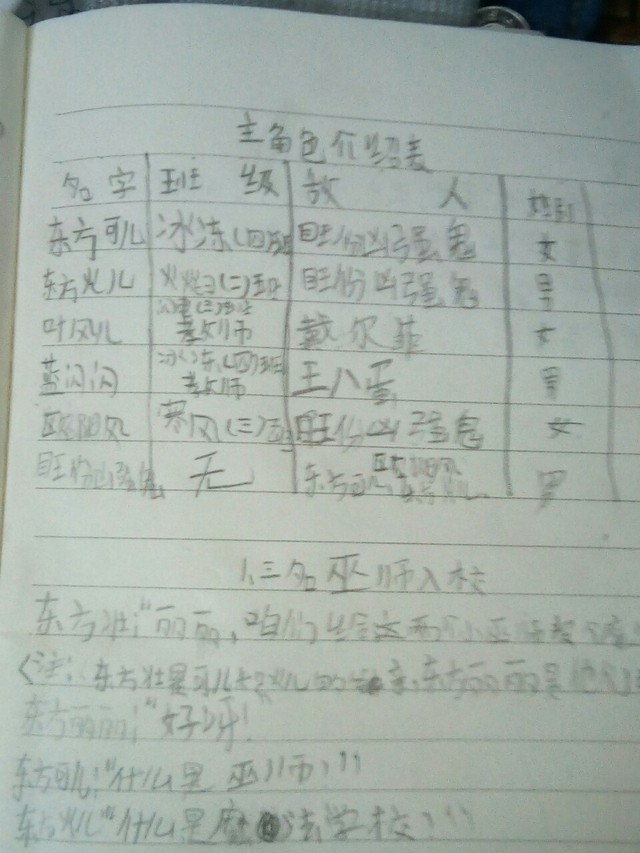 主角色介绍表
名字 班级 敌人 性别
东方可儿 冰冻(四)班 旺份凶强鬼 女
东方火儿 火焰(二)班 旺份凶强鬼 男
叶风儿 (三)班 老师 戴尔菲 女
蓝闪闪 冰冻(四)班 老师 王八蛋 男
欧阳风 寒风(三)班 旺份凶强鬼 女
旺份凶强鬼 无 东方可儿 欧阳风 东方火儿 男
1、三名巫师入校
东方壮:"丽丽,咱们给这两个小巫师
(注:东方壮是可儿和火儿的亲,东方丽丽是他们
东方丽丽:"好呀!"
东方可儿:"什么是巫师?"
东方火儿"什么是魔法学校?"